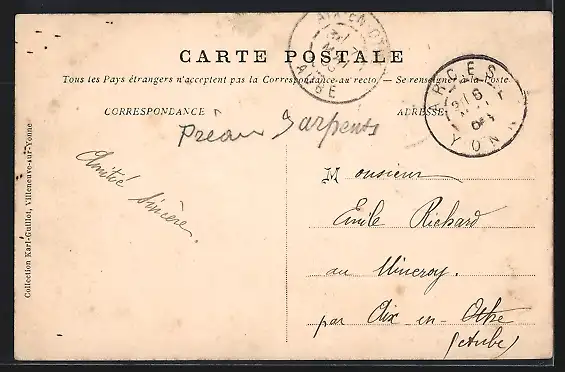 CARTE POSTALE
Tous les Pays étrangers n'acceptent pas la Correspondance au recto. — Se renseigner à la Poste
CORRESPONDANCE
ADRESSE
Préau Sarpents
Amitié sincère.
Monsieur
Emile Richard
au Mineroy.
par Aix en Othe
(Aube)
Collection Karl-Guillot, Villeneuve-sur-Yonne
AIX-EN-OTHE
AUBE
ARCES
YONNE